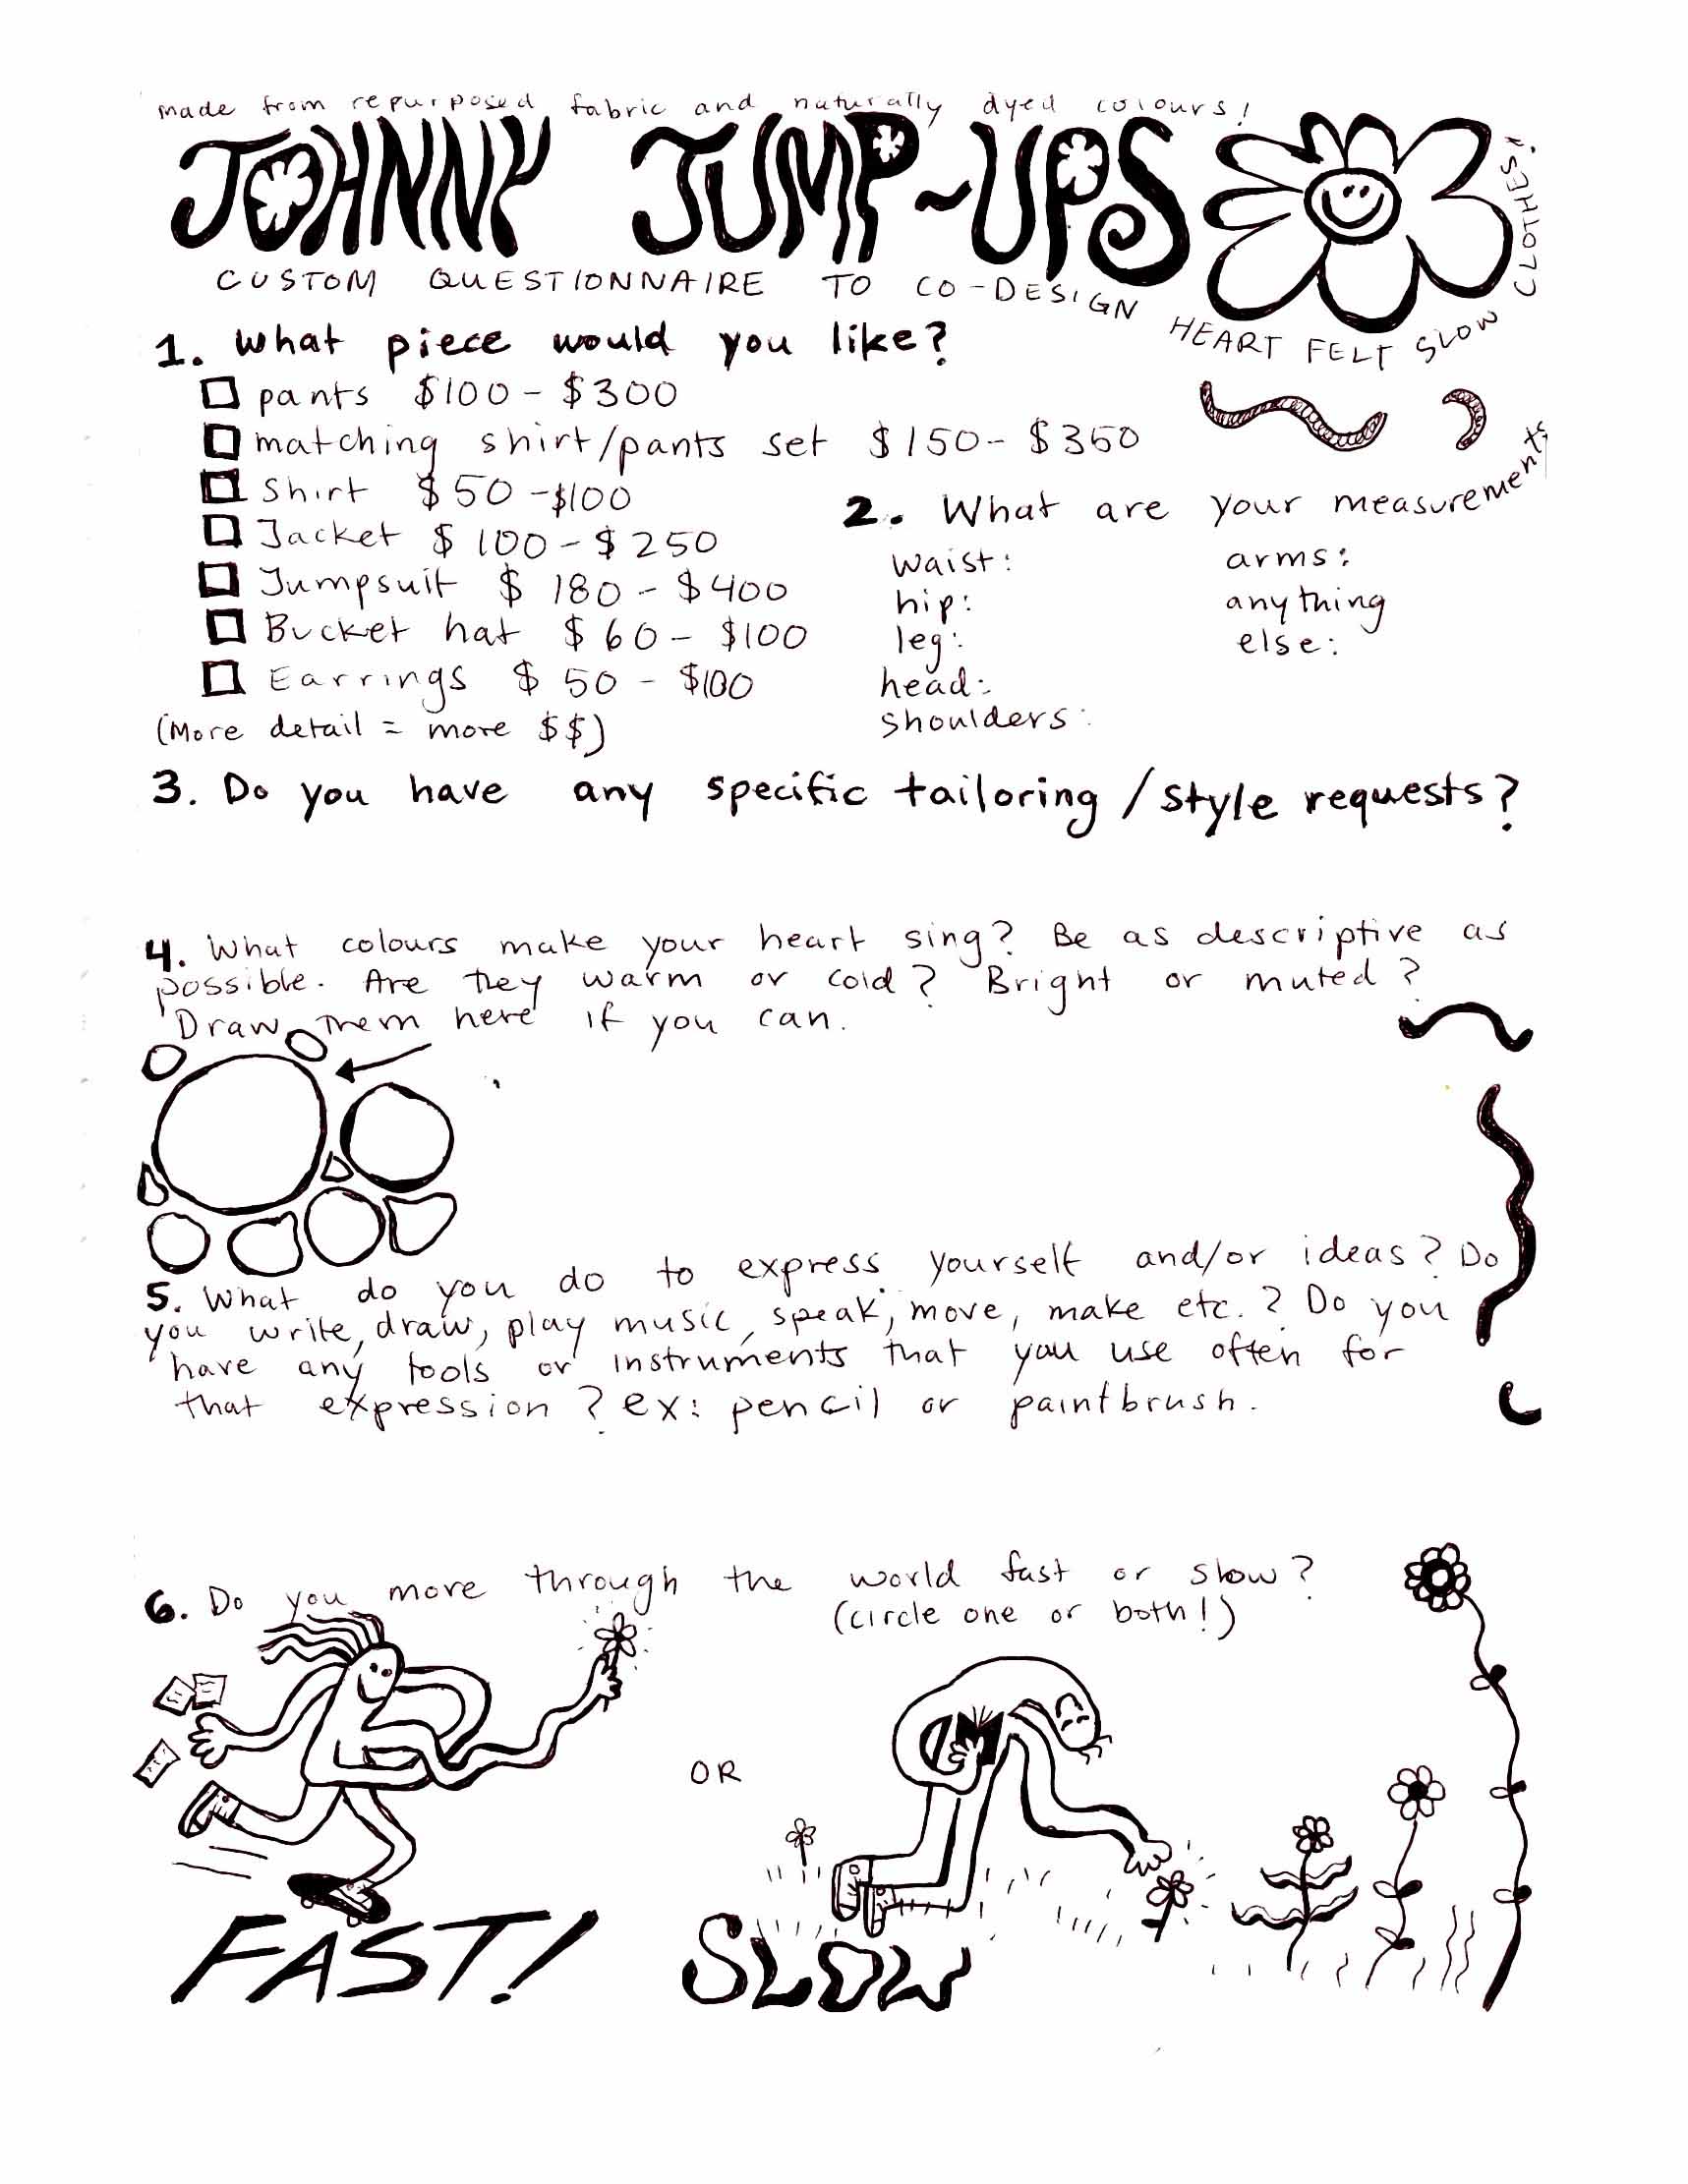 made from repurposed fabric and naturally dyed colours!
JOHNNY JUMP~UPS
CUSTOM QUESTIONNAIRE TO CO-DESIGN HEART FELT SLOW CLOTHES!
1. What piece would you like?
pants $100 - $300
matching shirt/pants set $150 - $350
Shirt $50 - $100
Jacket $100 - $250
Jumpsuit $180 - $400
Bucket hat $60 - $100
Earrings $50 - $100
(More detail = more $$)
2. What are your measurements
waist:
hip:
leg:
head:
shoulders:
arms:
anything
else:
3. Do you have any specific tailoring/style requests?
4. What colours make your heart sing? Be as descriptive as
possible. Are they warm or cold? Bright or muted?
Draw them here if you can.
5. What do you do to express yourself and/or ideas? Do
you write, draw, play music, speak, move, make etc.? Do you
have any tools or instruments that you use often for
that expression? ex: pencil or paintbrush.
6. Do you move through the world fast or slow?
(circle one or both!)
OR
FAST!
SLOW